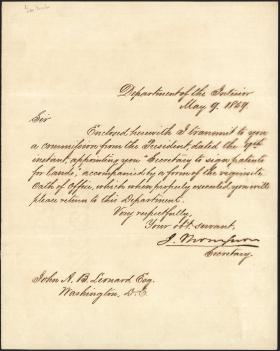 Department of the Interior
May 9. 1859.
Sir
Enclosed, herewith I transmit to you
a commission from the President, dated the 9th
instant, appointing you "Secretary to sign patents
for Lands", accompanied by a form of the requisite
Oath of Office, which when properly executed, you will
please return to this Department.
Very respectfully,
Your obt. servant,
J. Thompson
Secretary.
John A. B. Leonard Esq.
Washington, D.C.